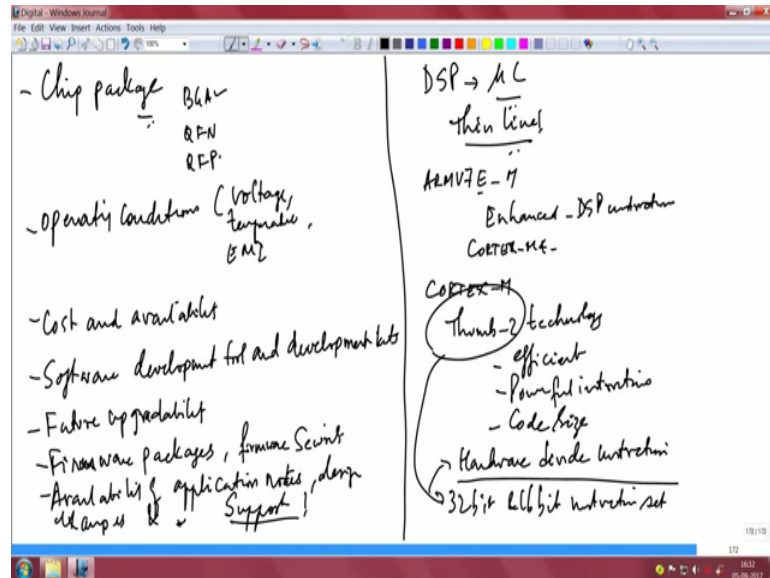 Digital - Windows Journal
File Edit View Insert Actions Tools Help
- Chip package
BGA
QFN
QFP.
- Operating Conditions (Voltage,
temperature,
EMI
- Cost and availability
- Software development tool and development kits
- Future upgradability
- Firmware packages, firmware Security
- Availability of application notes, design
examples &
Support!
DSP → μC
thin line
ARMV7E-M
Enhanced - DSP instruction
CORTEX-M4 -
CORTEX-M
Thumb-2 technology
- efficient
- Powerful instructions
- Code Size
Hardware divide instruction
32 bit & 16 bit instruction set
172/172
172
16:32
05-09-2017